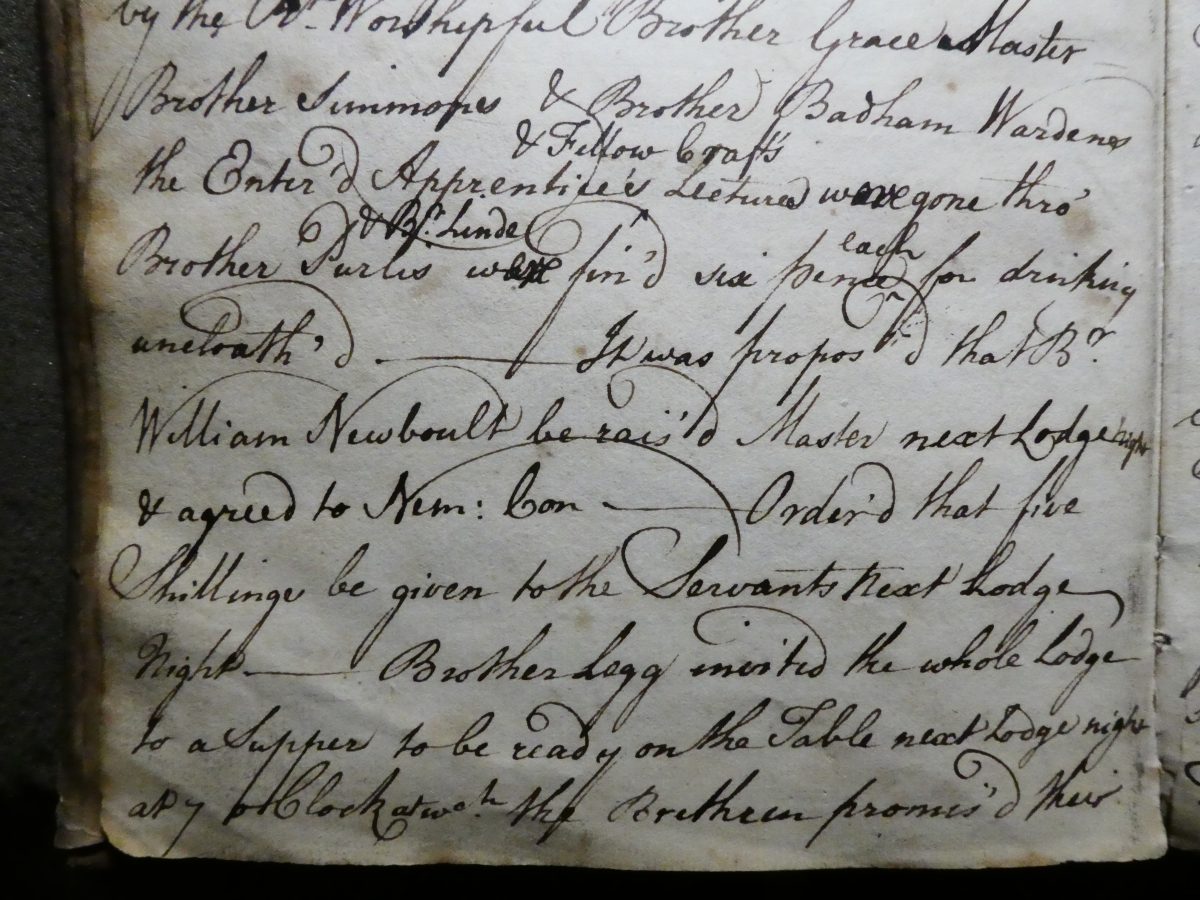 by the Rt. Worshipful Brother Grace Master
Brother Simmones & Brother Badham Wardens
& Fellow Crafts
the Enter'd Apprentice's Lectures were gone thro'
& Br. Linde
Brother Purlis were fin'd six pence each for drinking
uncloath'd — It was propos'd that Br.
William Newboult be rais'd Master next Lodge night
& agreed to Nem: Con — Order'd that five
Shillings be given to the Servants next Lodge
Night — Brother Legg invited the whole Lodge
to a Supper to be ready on the Table next Lodge night
at 7 o'Clock at wch. the Brethren promis'd their